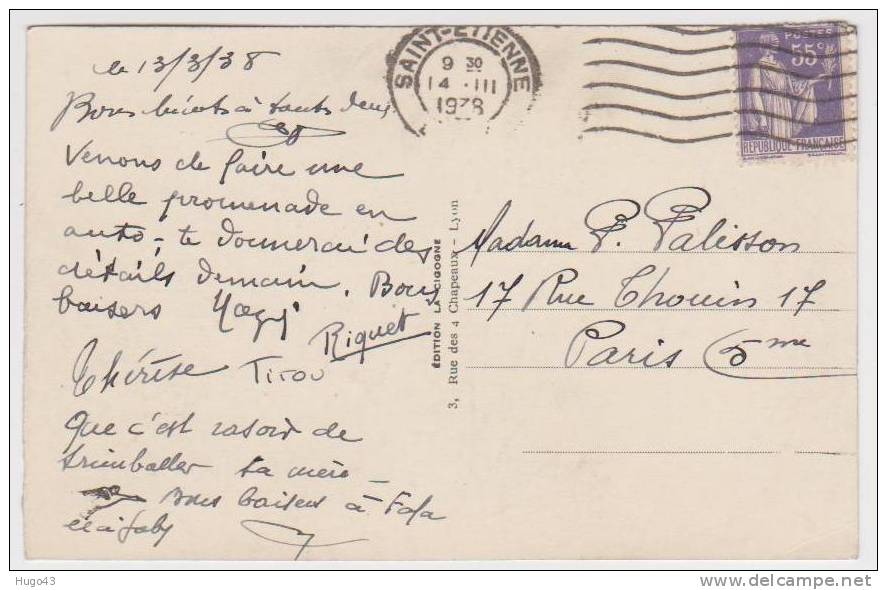 le 13/3/38
Bons bécots à touts deux
Venons de faire une
belle promenade en
auto - te donnerai des
détails demain. Bons
baisers
Riquet
Thérèse Titou
Que c'est rasoir de
trimballer sa mère
Bons baisers à Fafa
et à Gaby
SAINT-ETIENNE
9 30
14 · III
1938
POSTES
55c
REPUBLIQUE FRANÇAISE
ÉDITION LA CIGOGNE
3, Rue des 4 Chapeaux - Lyon
Madame P. Palisson
17 Rue Thouin 17
Paris 5me
Hugo43
www.delcampe.net